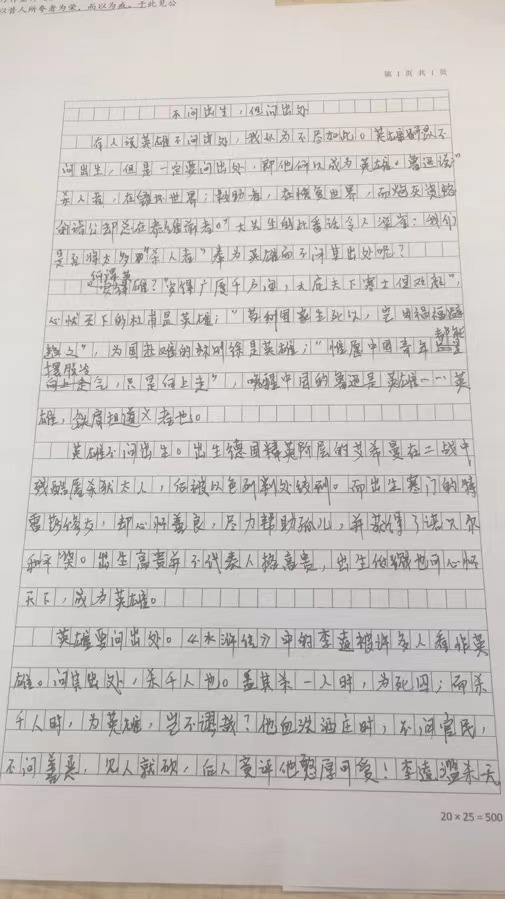 以昔人所夸者为荣，而以为戒。于此见公
第 1 页 共 1 页
不问出生，但问出处
有人说英雄不问出处，我认为不尽如此。英雄不
问出生，但是一定要问出处，即他何以成为英雄。鲁迅说："
杀人者，在毁坏世界；救助者，在修复世界，而炮灰资格
的诸公却总在恭维前者。"大先生的此番话令人深省：我们
是否将太多"杀人者"奉为英雄而不问其出处呢？
何谓英
雄？"安得广厦千万间，大庇天下寒士俱欢颜"，
心忧天下的杜甫是英雄；"苟利国家生死以，岂因祸福避
趋之"，为国赴难的林则徐是英雄；"惟愿中国青年都能
摆脱冷
向上走气，只是向上走"，唤醒中国的鲁迅是英雄……英
雄，铁肩担道义者也。
英雄不问出生。出生德国精英阶层的艾希曼在二战中
残酷屠杀犹太人，后被以色列判处绞刑。而出生寒门的特
蕾莎修女，却心怀善良，尽力帮助孤儿，并获得了诺贝尔
和平奖。出生高贵并不代表人格高贵，出生低微也可心怀
天下，成为英雄。
英雄要问出处。《水浒传》中的李逵被许多人看作英
雄。问其出处，杀千人也。盖其杀一人时，为死囚；而杀
千人时，为英雄，岂不谬哉？他血洗酒庄时，不问官民，
不问善恶，见人就砍，后人竟评他憨厚可爱！李逵滥杀无
20×25=500